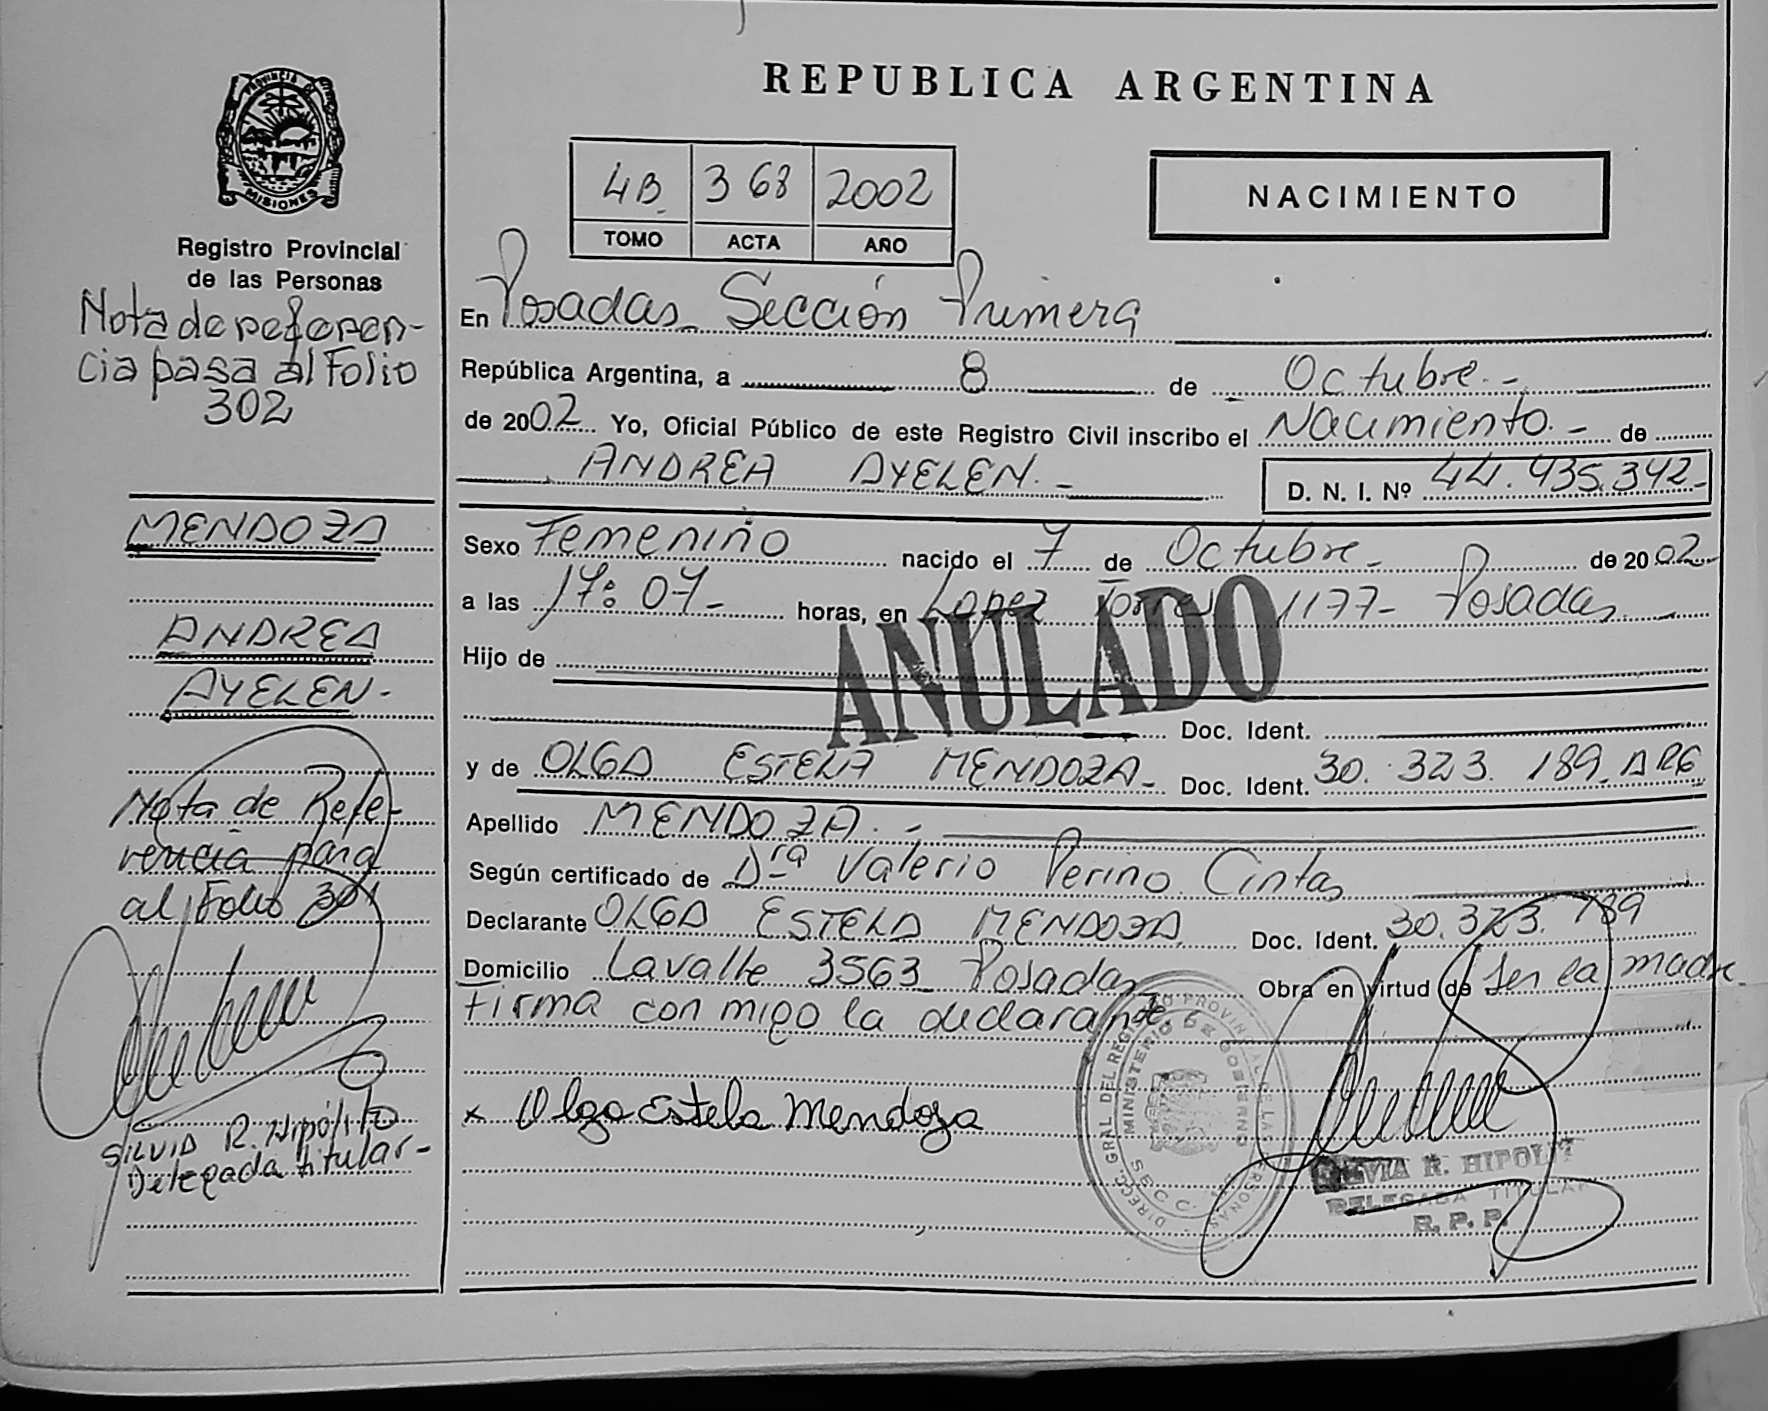 PROVINCIA DE
MISIONES
Registro Provincial
de las Personas
Nota de referen-
cia pasa al Folio
302
MENDOZA
ANDREA
AYELEN.-
Nota de Refe-
rencia para
al Folio 301
SILVIA R. Hipólito
Delegada titular-
REPUBLICA ARGENTINA
4B. 368 2002
TOMO ACTA AÑO
NACIMIENTO
En Posadas Sección Primera
República Argentina, a 8 de Octubre.-
de 2002. Yo, Oficial Público de este Registro Civil inscribo el Nacimiento.- de
ANDREA AYELEN.- D. N. I. Nº 44.435.342-
Sexo Femenino nacido el 7 de Octubre- de 2002
a las 17:07- horas, en Lopez Torres 1177- Posadas
ANULADO
Hijo de
Doc. Ident.
y de OLGA ESTELA MENDOZA- Doc. Ident. 30.323.189-ARG
Apellido MENDOZA.-
Según certificado de Drª Valerio Perino Cintas
Declarante OLGA ESTELA MENDOZA Doc. Ident. 30.323.189
Domicilio Lavalle 3563 Posadas Obra en virtud de ser la madre-
Firma con migo la declarante
x Olga Estela Mendoza
DIRECC. GRAL. DEL REGISTRO PROVINCIAL DE LAS PERSONAS
MINISTERIO DE GOBIERNO
SECC. 1ª
SILVIA R. HIPOLIT
DELEGADA TITULAR
R. P. P.